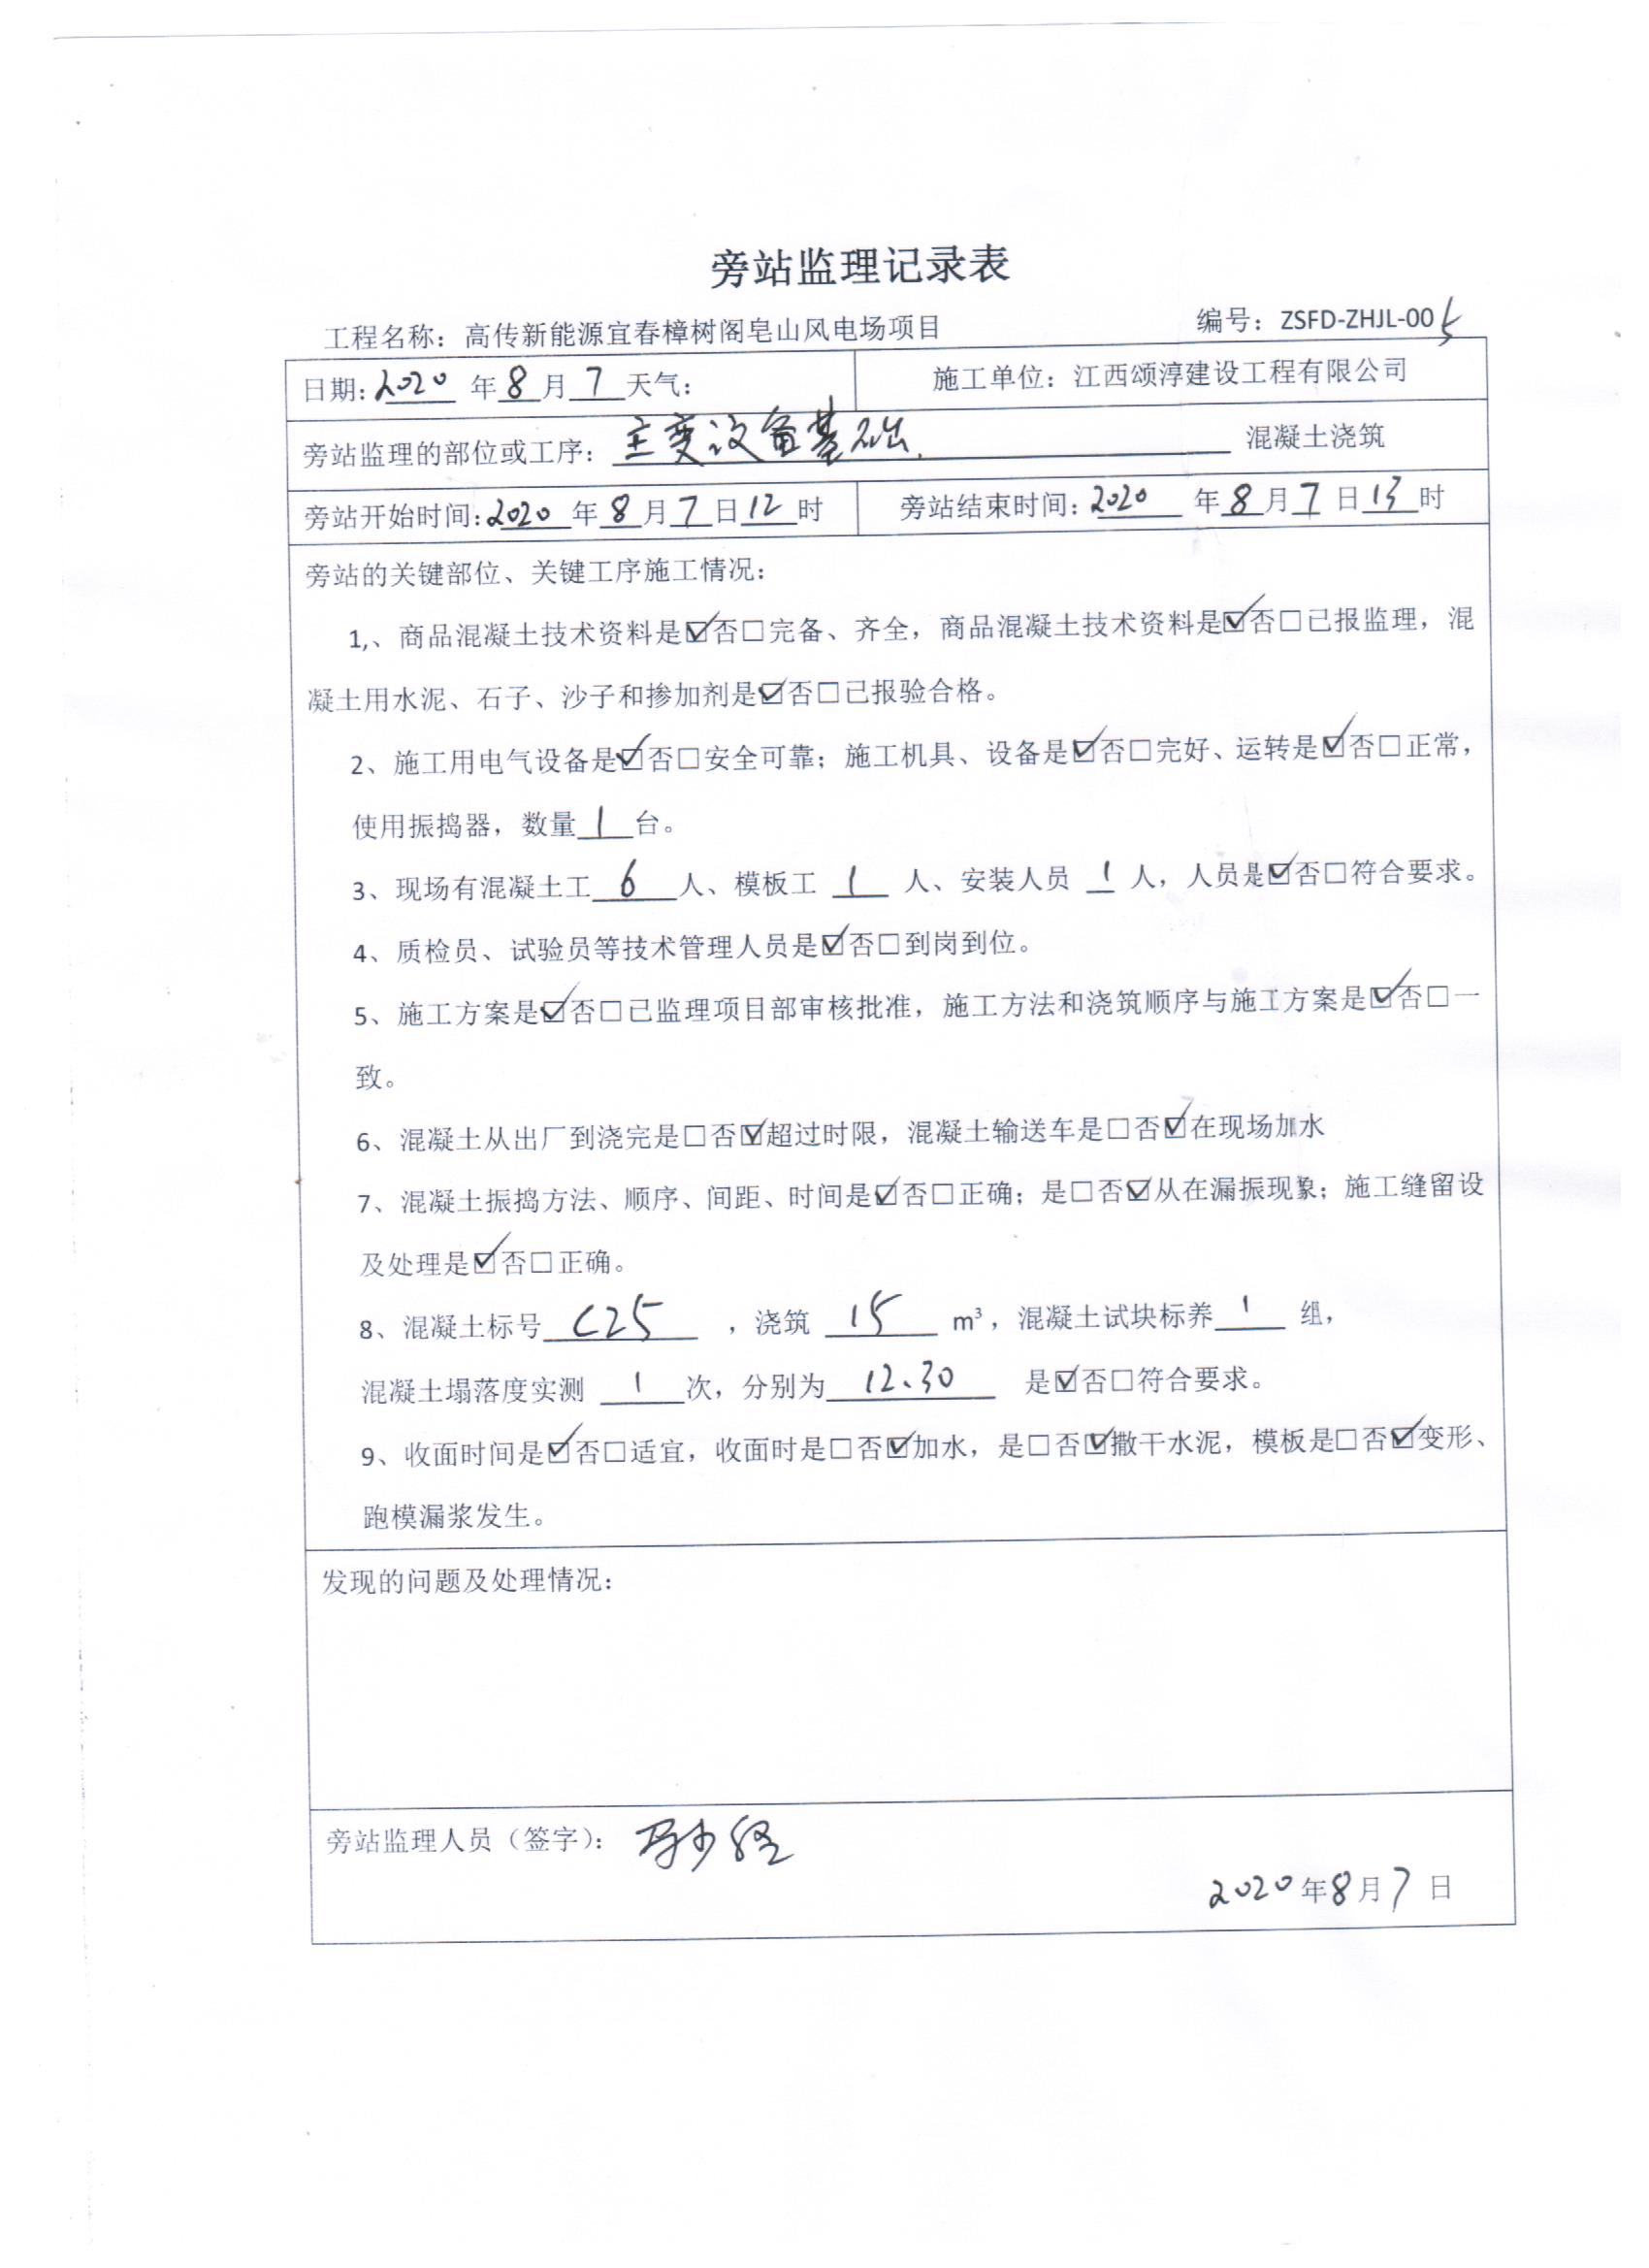 旁站监理记录表
工程名称：高传新能源宜春樟树阁皂山风电场项目 编号：ZSFD-ZHJL-005
日期：2020 年 8 月 7 天气： 施工单位：江西颂淳建设工程有限公司
旁站监理的部位或工序：主变设备基础. 混凝土浇筑
旁站开始时间：2020 年 8 月 7 日 12 时 旁站结束时间：2020 年 8 月 7 日 13 时
旁站的关键部位、关键工序施工情况：
1,、商品混凝土技术资料是☑否□完备、齐全，商品混凝土技术资料是☑否□已报监理，混
凝土用水泥、石子、沙子和掺加剂是☑否□已报验合格。
2、施工用电气设备是☑否□安全可靠；施工机具、设备是☑否□完好、运转是☑否□正常，
使用振捣器，数量 1 台。
3、现场有混凝土工 6 人、模板工 1 人、安装人员 1 人，人员是☑否□符合要求。
4、质检员、试验员等技术管理人员是☑否□到岗到位。
5、施工方案是☑否□已监理项目部审核批准，施工方法和浇筑顺序与施工方案是☑否□一
致。
6、混凝土从出厂到浇完是□否☑超过时限，混凝土输送车是□否☑在现场加水
7、混凝土振捣方法、顺序、间距、时间是☑否□正确；是□否☑从在漏振现象；施工缝留设
及处理是☑否□正确。
8、混凝土标号 C25 ，浇筑 15 m³，混凝土试块标养 1 组，
混凝土塌落度实测 1 次，分别为 12.30 是☑否□符合要求。
9、收面时间是☑否□适宜，收面时是□否☑加水，是□否☑撒干水泥，模板是□否☑变形、
跑模漏浆发生。
发现的问题及处理情况：
旁站监理人员（签字）：
2020 年 8 月 7 日